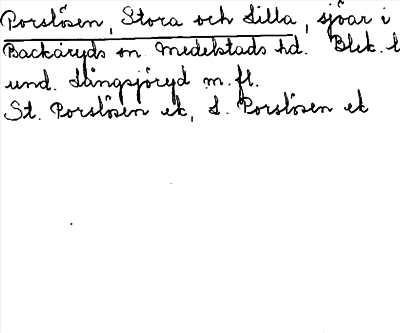 Porslösen, Stora och Lilla, sjöar i
Backaryds sn Medelstads hd. Blek. l
und. Långsjöryd m.fl.
St. Porslösen ek, L. Porslösen ek